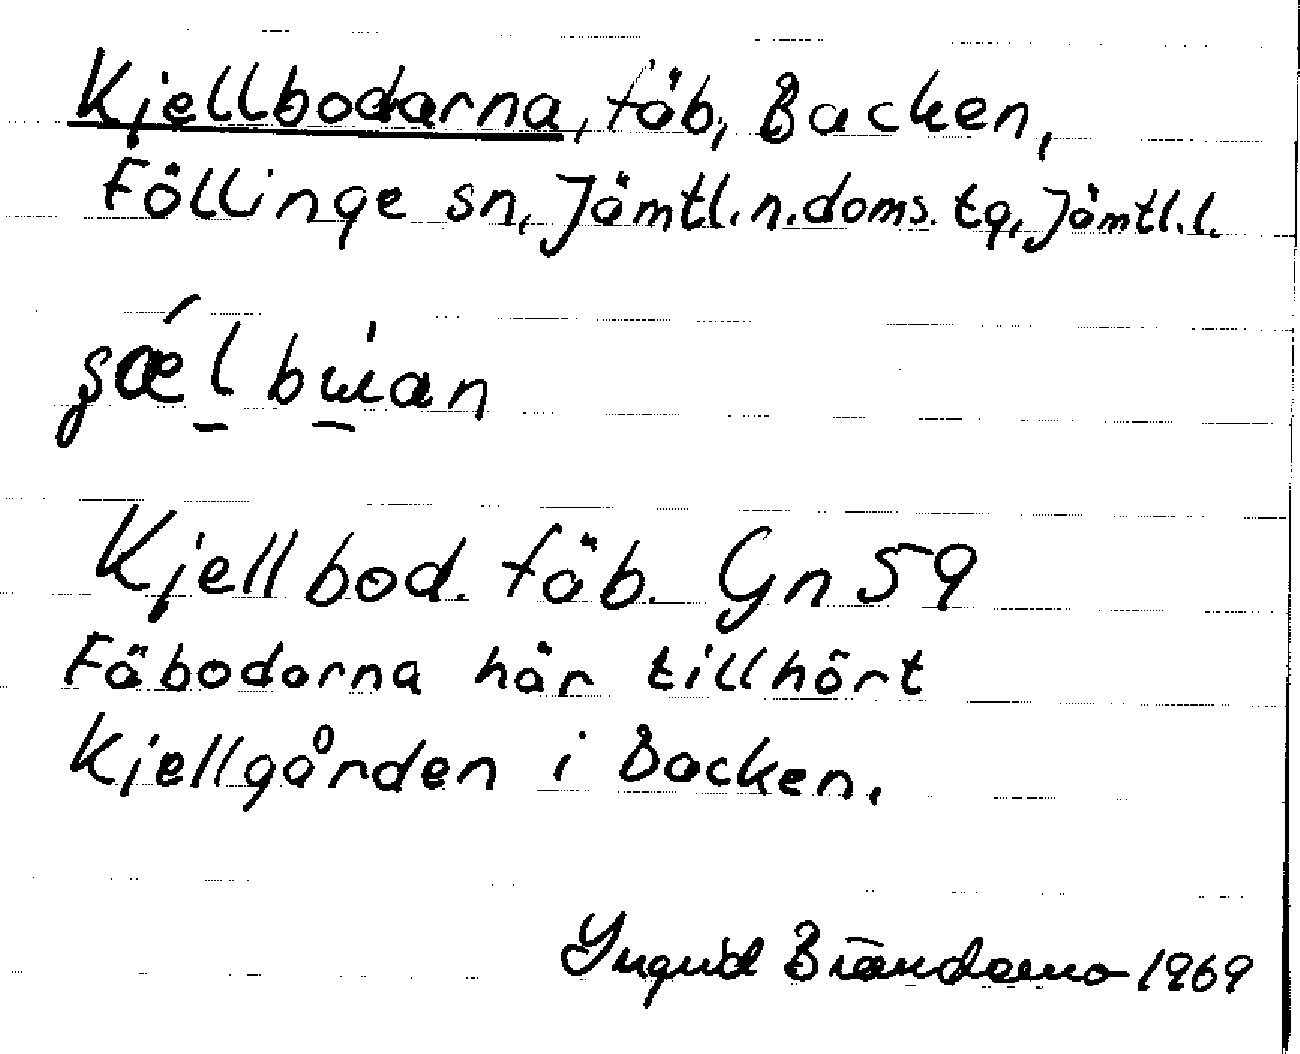 Kjellbodarna, fäb, Backen,
Föllinge sn, Jämtl. n. doms. tg, Jämtl. l.
Kjellbod. fäb. Gn 59
Fäbodarna här tillhört
Kjellgården i Backen.
Ingrid 1969